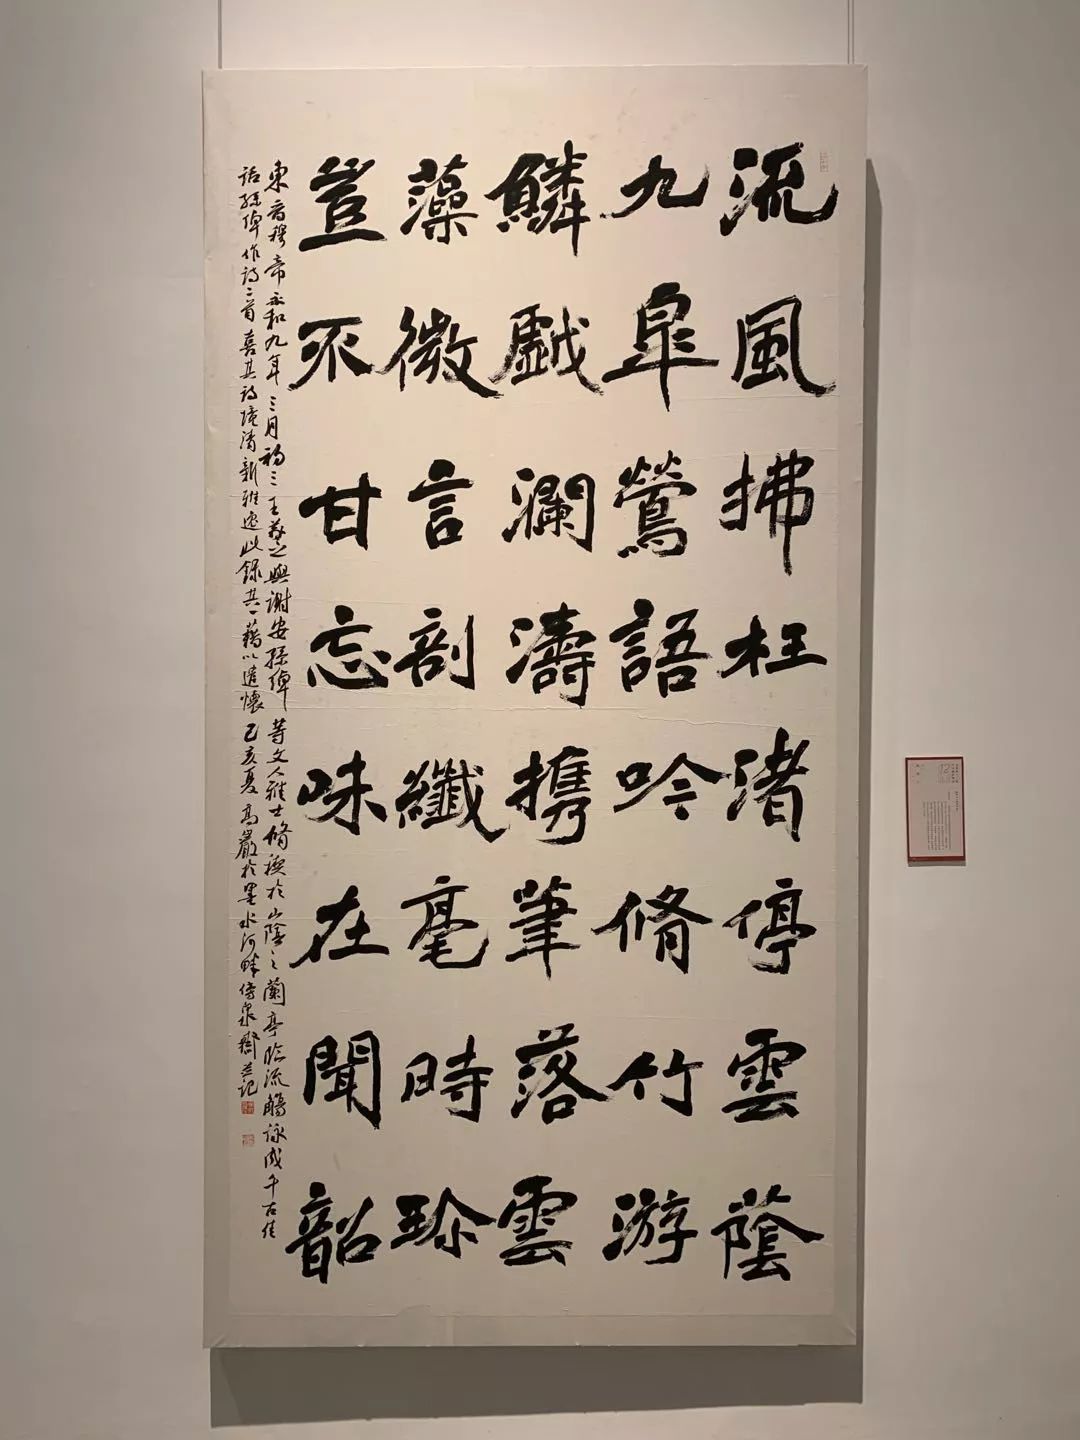 流風拂枉渚停雲蔭
九皐鶯語吟脩竹游
鱗戲瀾濤攜筆落雲
藻微言剖纖毫時珍
豈不甘忘味在聞韶
東晉穆帝永和九年三月初三王羲之與謝安孫綽等文人雅士脩禊於山陰之蘭亭臨流觴詠成千古佳
話孫綽作詩二首喜其詩境清新雅逸此錄其一藉以遣懷己亥夏高巖於墨水河畔傍泉齋並記